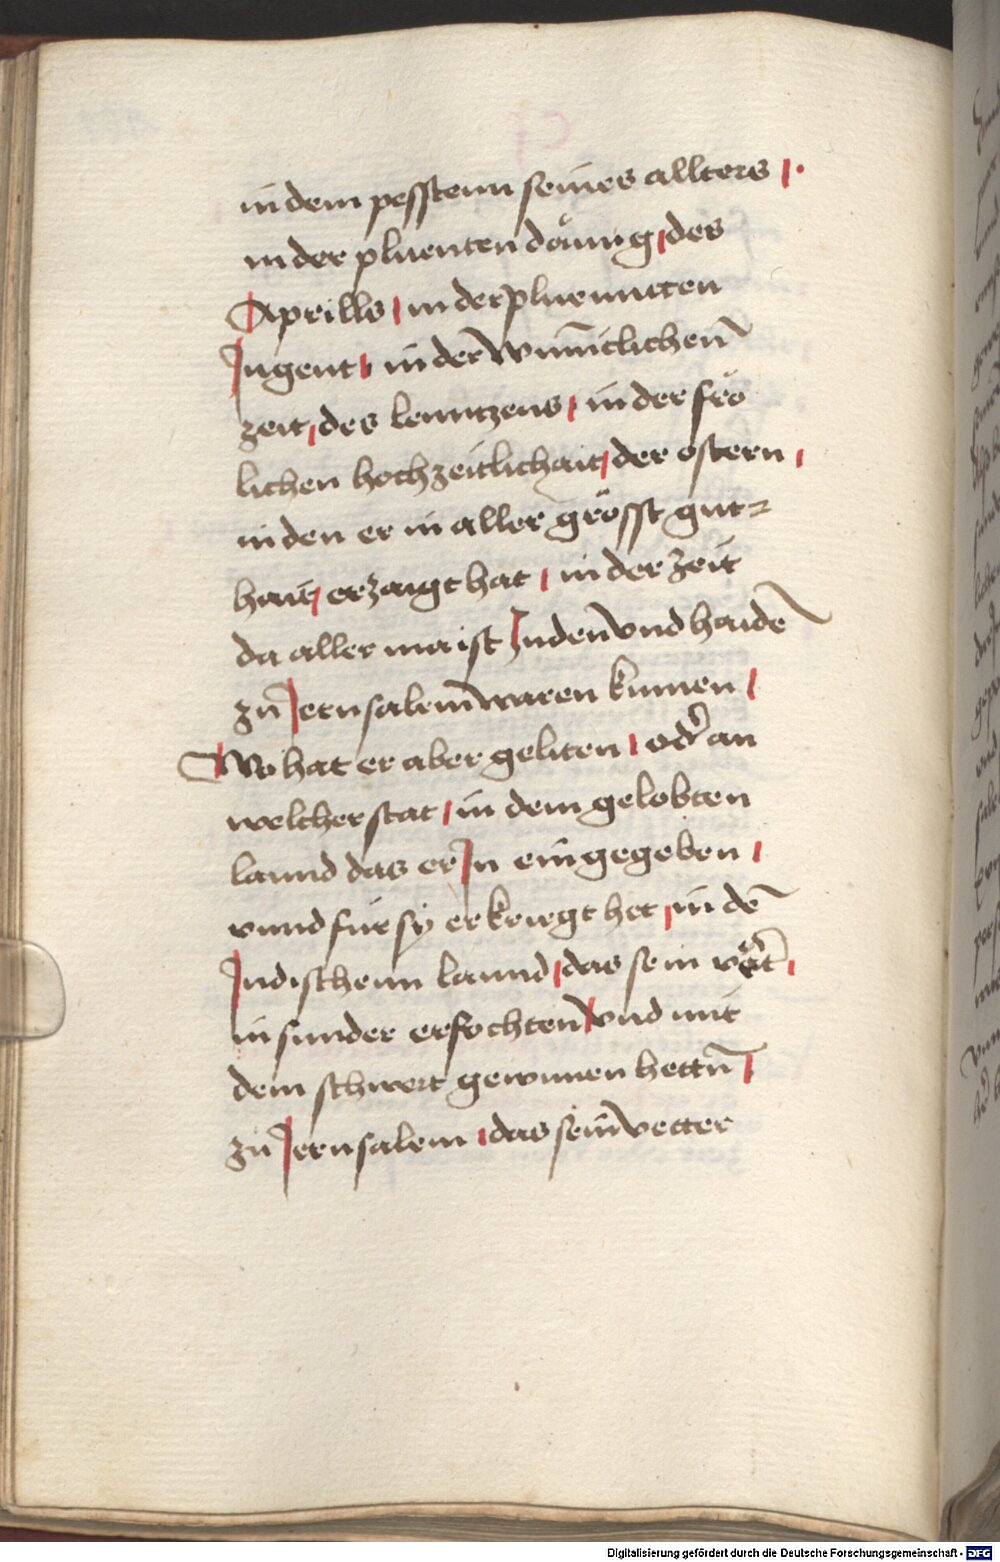 in dem pessten seines allters |.
in der pluenten döunig | des
Aprills | in der pluenntten
Jugent | in der wun̄iclichen̄
zeit | des lenntzens | in der frö
lichen hochzeitlichait | der ostern |
in den er in aller grösst gut=
hait | erzaigt hat | in der zeit
da aller maist Juden vnd haidē
zu Jerusalem waren kumen |
Wo hat er aber geliten | odʾ an
welcher stat | in dem gelobten
lannd das er Jn eingegeben |
vnnd für sy erkriegt het | in dē
Judischenn lannd | das sein
in sunder erfochten vnd mit
dem schwert gewunen hettn̄ |
zu Jerusalem | das sein vetter
Digitalisierung gefördert durch die Deutsche Forschungsgemeinschaft - DFG